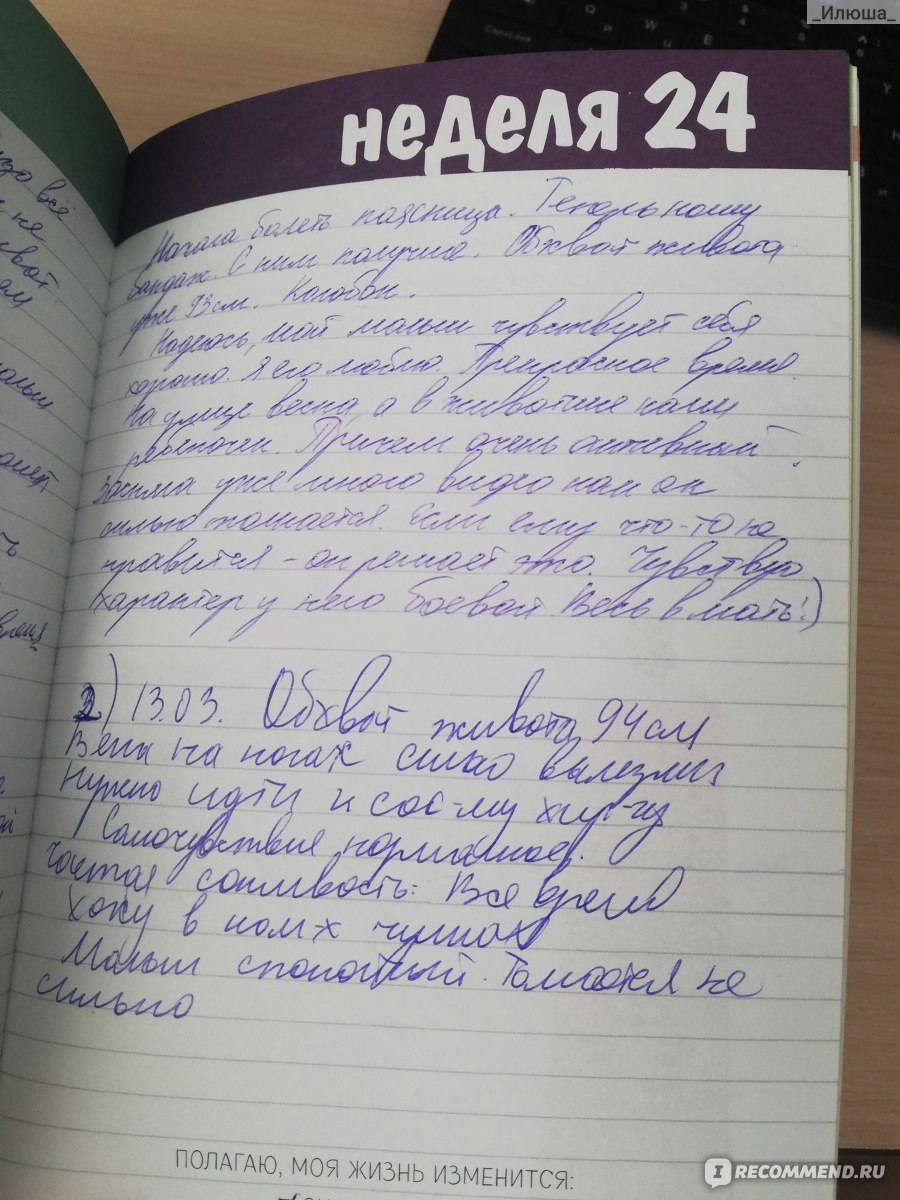 _Илюша_
неделя 24
Начала болеть поясница. Теперь ношу
бандаж. С ним получше. Обхват живота
уже 93 см. Колобок.
Надеюсь, мой малыш чувствует себя
хорошо. Я его люблю. Прекрасное время.
На улице весна, а в животике наш
рыбочки. Причем очень активный.
Засняла уже много видео как он
сильно толкается. Если ему что-то не
нравится - он решает это. Чувствую
характер у него боевой. Весь в мать!)
2) 13.03. Обхват живота 94 см
Вены на ногах сильно вылезли
Нужно идти к сос-му хир-гу
Самочувствие нормальное.
Частая сонливость. Все время
хожу в комп-х чулках
Малыш спокойный. Толкается не
сильно
ПОЛАГАЮ, МОЯ ЖИЗНЬ ИЗМЕНИТСЯ:
всё
не
время
IRECOMMEND.RU